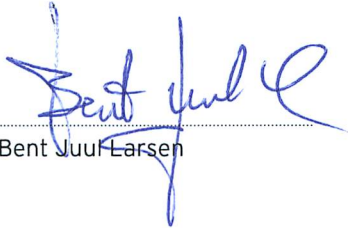 Bent Juul L
Bent Juul Larsen